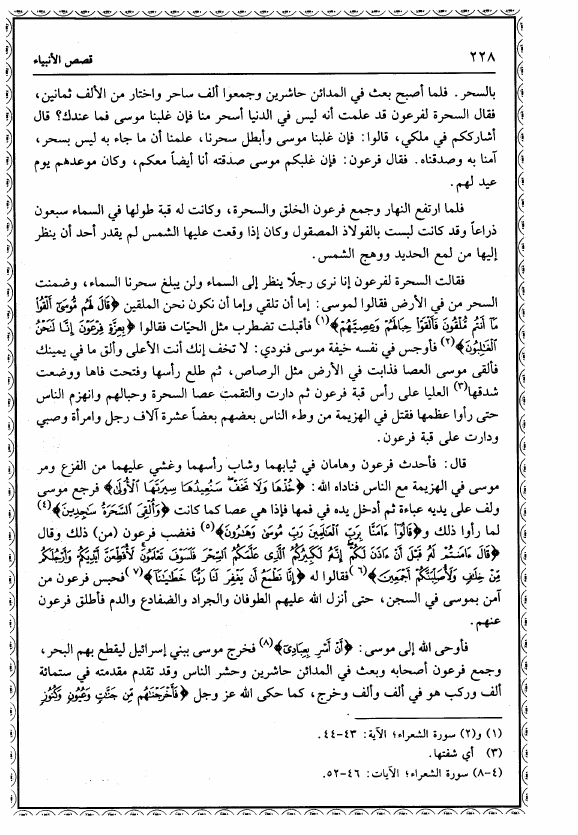 ٢٢٨
قصص الأنبياء
بالسحر. فلما أصبح بعث في المدائن حاشرين وجمعوا ألف ساحر واختار من الألف ثمانين،
فقال السحرة لفرعون قد علمت أنه ليس في الدنيا أسحر منا فإن غلبنا موسى فما عندك؟ قال
أشارككم في ملكي، قالوا: فإن غلبنا موسى وأبطل سحرنا، علمنا أن ما جاء به ليس بسحر،
آمنا به وصدقناه. فقال فرعون: فإن غلبكم موسى صدقته أنا أيضاً معكم، وكان موعدهم يوم
عيد لهم.
فلما ارتفع النهار وجمع فرعون الخلق والسحرة، وكانت له قبة طولها في السماء سبعون
ذراعاً وقد كانت لبست بالفولاذ المصقول وكان إذا وقعت عليها الشمس لم يقدر أحد أن ينظر
إليها من لمع الحديد ووهج الشمس.
فقالت السحرة لفرعون إنا نرى رجلًا ينظر إلى السماء ولن يبلغ سحرنا السماء، وضمنت
السحر من في الأرض فقالوا لموسى: إما أن تلقي وإما أن نكون نحن الملقين ﴿قَالَ لَهُم مُّوسَىٰٓ أَلْقُوا۟
مَآ أَنتُم مُّلْقُونَ فَأَلْقَوْا۟ حِبَالَهُمْ وَعِصِيَّهُمْ﴾(١) فأقبلت تضطرب مثل الحيّات فقالوا ﴿بِعِزَّةِ فِرْعَوْنَ إِنَّا لَنَحْنُ
ٱلْغَٰلِبُونَ﴾(٢) فأوجس في نفسه خيفة موسى فنودي: لا تخف إنك أنت الأعلى وألق ما في يمينك
فألقى موسى العصا فذابت في الأرض مثل الرصاص، ثم طلع رأسها وفتحت فاها ووضعت
شدقها(٣) العليا على رأس قبة فرعون ثم دارت والتقمت عصا السحرة وحبالهم وانهزم الناس
حتى رأوا عظمها فقتل في الهزيمة من وطء الناس بعضهم بعضاً عشرة آلاف رجل وامرأة وصبي
ودارت على قبة فرعون.
قال: فأحدث فرعون وهامان في ثيابهما وشاب رأسهما وغشي عليهما من الفزع ومر
موسى في الهزيمة مع الناس فناداه الله: ﴿خُذْهَا وَلَا تَخَفْ سَنُعِيدُهَا سِيرَتَهَا ٱلْأُولَىٰ﴾ فرجع موسى
ولف على يديه عباءة ثم أدخل يده في فمها فإذا هي عصا كما كانت ﴿وَأُلْقِىَ ٱلسَّحَرَةُ سَٰجِدِينَ﴾(٤)
لما رأوا ذلك و﴿قَالُوٓا۟ ءَامَنَّا بِرَبِّ ٱلْعَٰلَمِينَ رَبِّ مُوسَىٰ وَهَٰرُونَ﴾(٥) فغضب فرعون (من) ذلك وقال
﴿قَالَ ءَامَنتُمْ لَهُۥ قَبْلَ أَنْ ءَاذَنَ لَكُمْ إِنَّهُۥ لَكَبِيرُكُمُ ٱلَّذِى عَلَّمَكُمُ ٱلسِّحْرَ فَلَسَوْفَ تَعْلَمُونَ لَأُقَطِّعَنَّ أَيْدِيَكُمْ وَأَرْجُلَكُم
مِّنْ خِلَٰفٍ وَلَأُصَلِّبَنَّكُمْ أَجْمَعِينَ﴾(٦) فقالوا له ﴿إِنَّا نَطْمَعُ أَن يَغْفِرَ لَنَا رَبُّنَا خَطَٰيَٰنَآ﴾(٧) فحبس فرعون من
آمن بموسى في السجن، حتى أنزل الله عليهم الطوفان والجراد والضفادع والدم فأطلق فرعون
عنهم.
فأوحى الله إلى موسى: ﴿أَنْ أَسْرِ بِعِبَادِىٓ﴾(٨) فخرج موسى ببني إسرائيل ليقطع بهم البحر،
وجمع فرعون أصحابه وبعث في المدائن حاشرين وحشر الناس وقد تقدم مقدمته في ستمائة
ألف وركب هو في ألف وألف وخرج، كما حكى الله عز وجل ﴿فَأَخْرَجْنَٰهُم مِّن جَنَّٰتٍ وَعُيُونٍ وَكُنُوزٍ
(١) و(٢) سورة الشعراء؛ الآية: ٤٣-٤٤.
(٣) أي شفتها.
(٤-٨) سورة الشعراء؛ الآيات: ٤٦-٥٢.